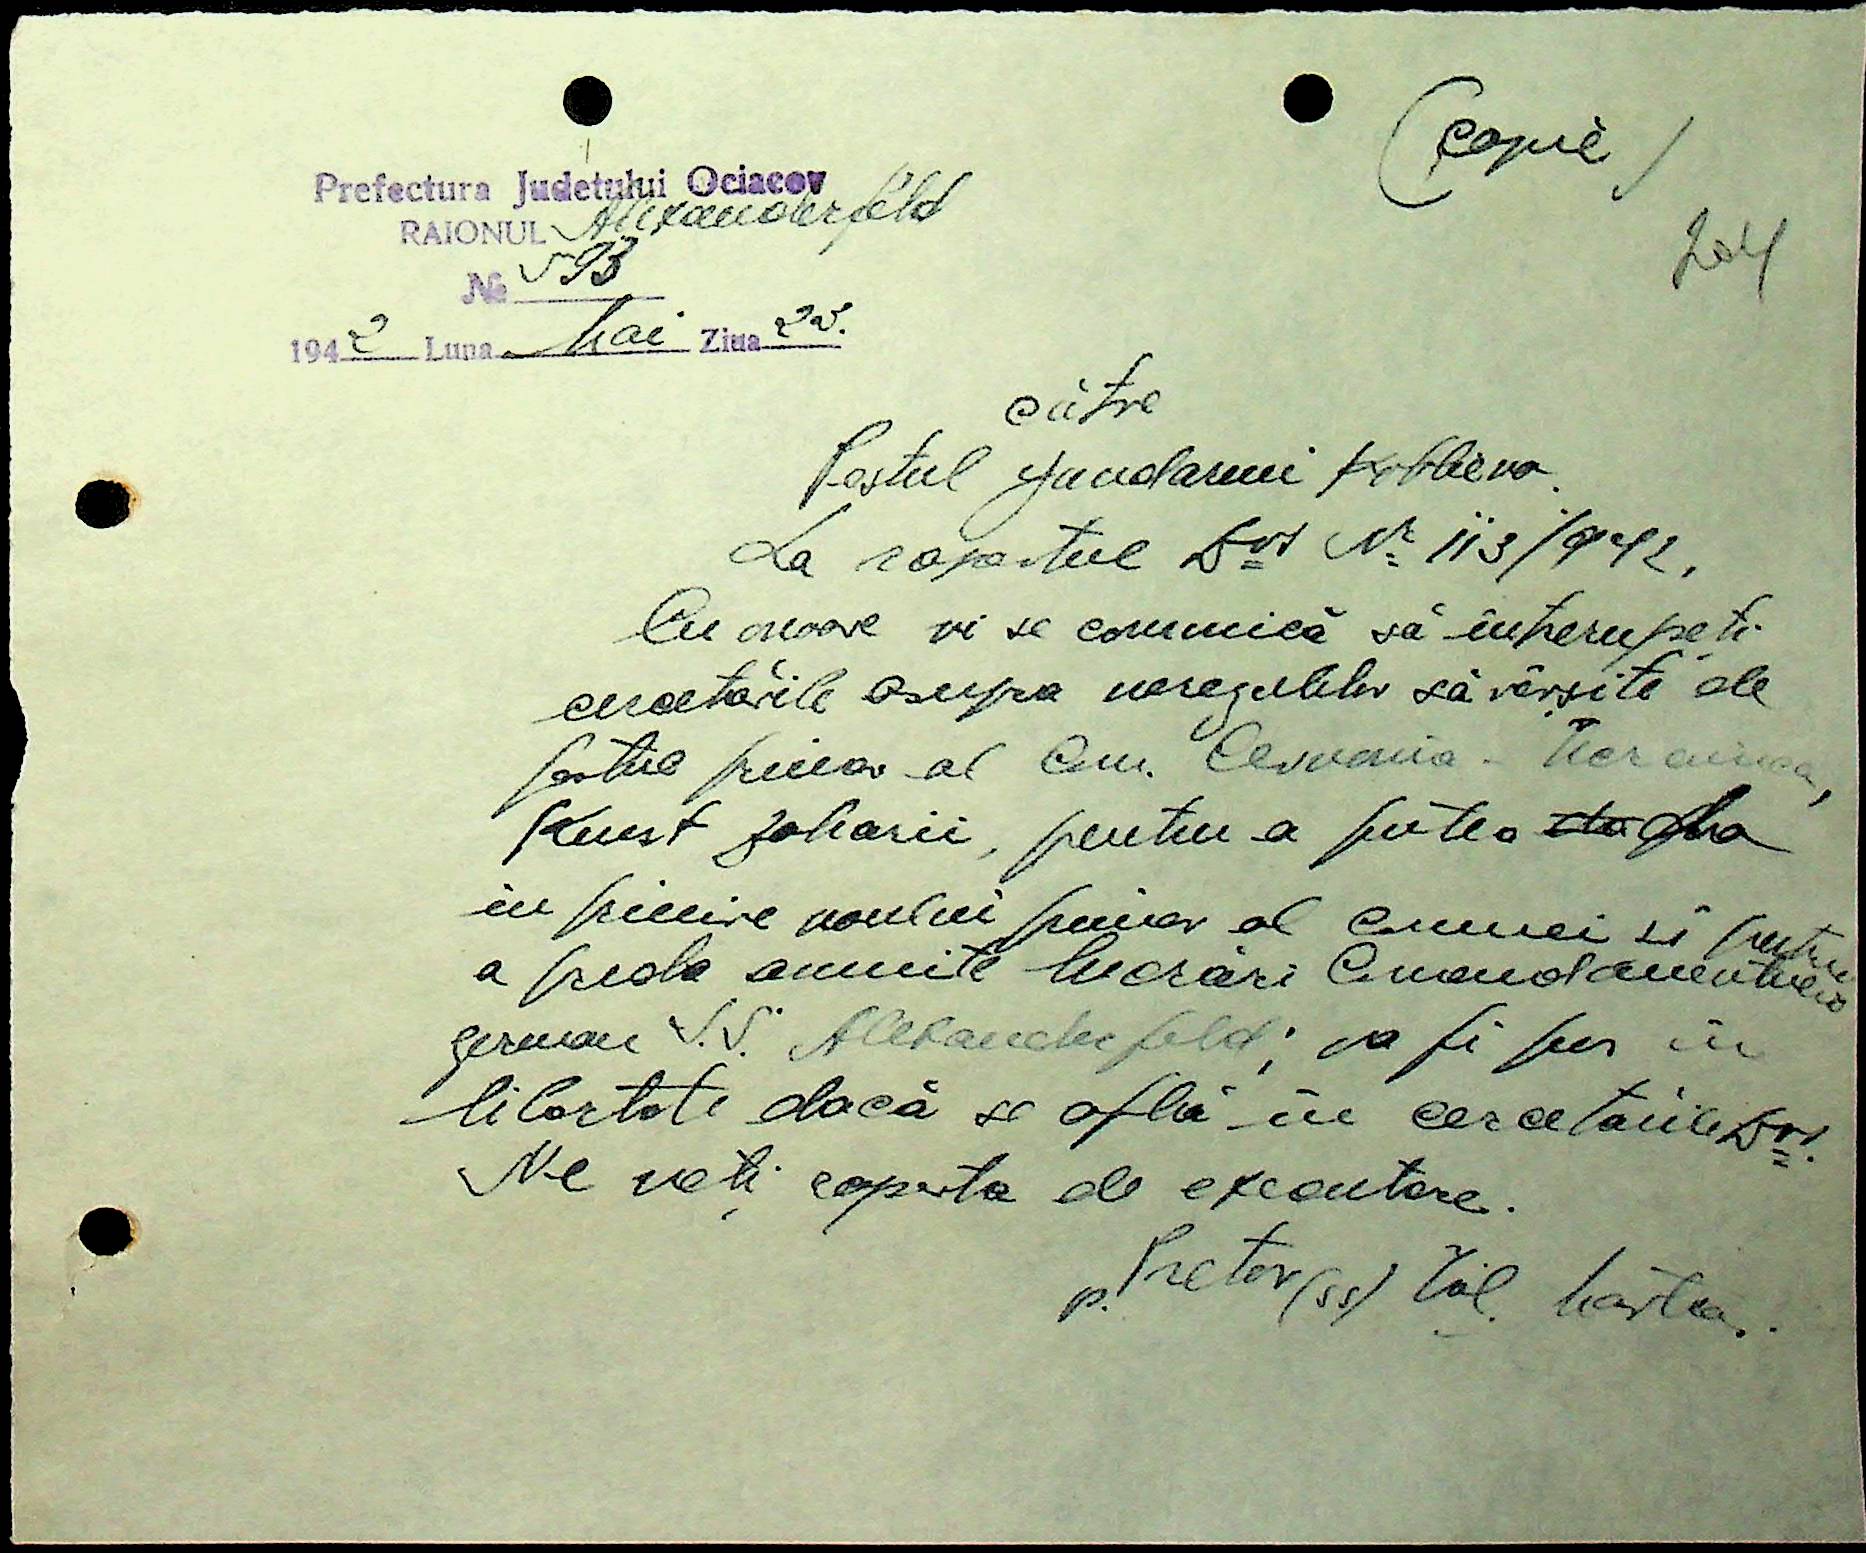 (Copie)
204
Prefectura Judetului Ociacov
RAIONUL Alexanderfeld
№ 593
1942 Luna Mai Ziua 23.
către
Postul Jandarmi Kobleva.
La raportul Dvs № 113/942.
Cu onoare vi se comunică să întrerupeți
cercetările asupra neregulilor săvârșite de
fostul primar al Com. Cervonia - Ucrainca,
Kunst Zaharii, pentru a putea da
în primire noului primar al comunei si pentru
a preda anumite lucrări Comandamentului
german S.S. Alexanderfeld; va fi pus în
libertate dacă se află în cercetările Dvs.
Ne veți raporta de executare.
p. Pretor (ss) Val.